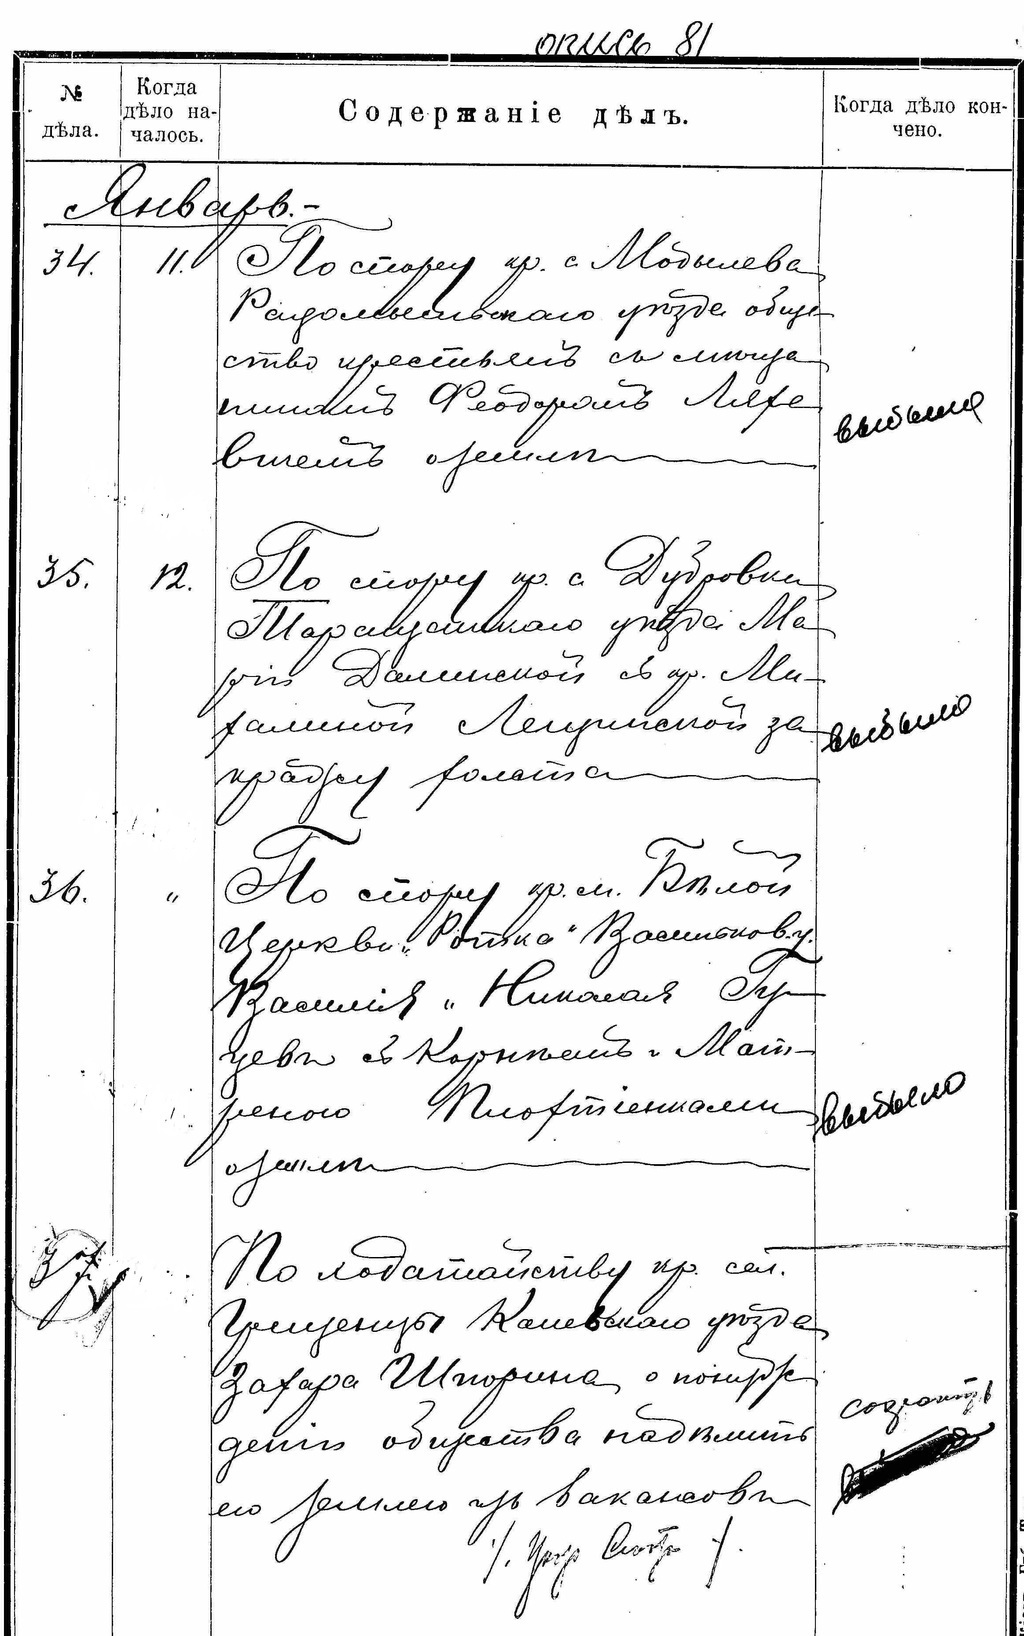 опись 81
№ дѣла.
Когда дѣло началось.
Содержаніе дѣлъ.
Когда дѣло кончено.
Январь.-
34. 11. По спору кр. с. Мобылева
Радомысльскаго уѣзда обще
ство крестьянъ съ мѣща
ниномъ Феодоромъ Ляхо
вичемъ о землѣ
выбыло
35. 12. По спору кр. с. Дубровки
Таращанскаго уѣзда Ма
ріи Далинской съ кр. Ми-
халиной за
выбыло
кражу холста
36. " По спору кр. м. Бѣлой
Церкви „Ротка" Васильков. у.
Василія и Николая Гу
цевы съ Корнѣемъ и Мат-
реною
выбыло
о землѣ
37. По ходатайству кр. сел.
Грищенцы Каневскаго уѣзда
Захара Шпорина о понужде
деніи общества надѣлить
сохранить
его землею изъ вакансовъ